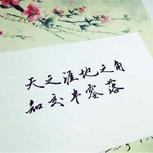 天之涯地之角
知交半零落